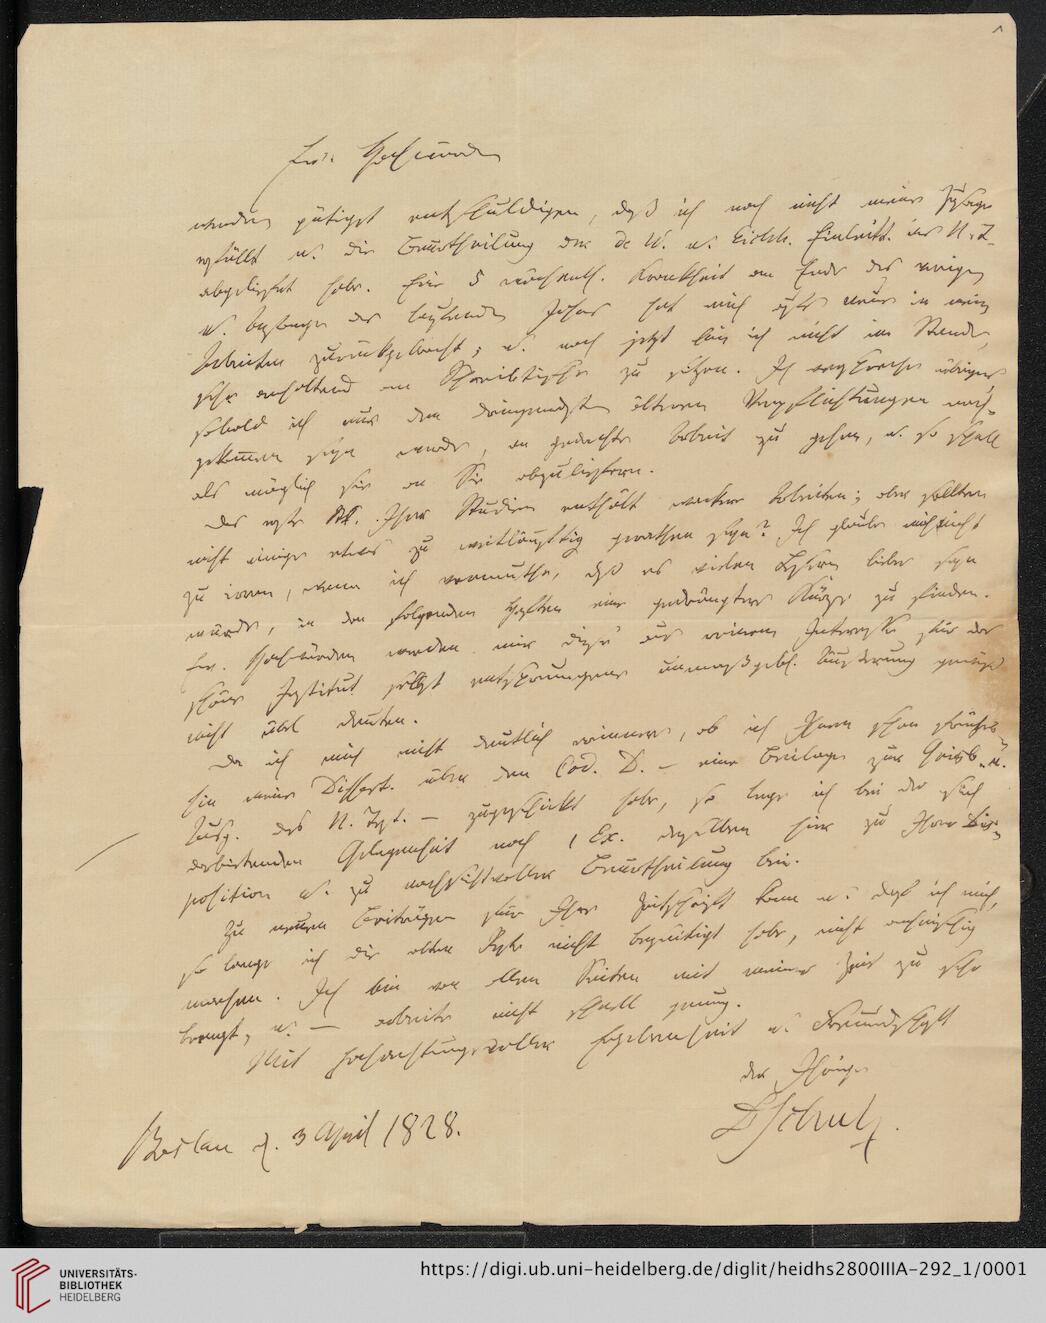 Ew. Hochwürden
werden gütigst entschuldigen, daß ich noch nicht meine Zusage
erfüllt u. die Beurtheilung der de W. u. Eichh. Einleitt. ins N. T.
abgeliefert habe. Eine 5 wöchentl. Krankheit am Ende des vorigen
u. Anfange des laufenden Jahres hat mich in meinen
Arbeiten zurückgebracht; u. noch jetzt bin ich nicht im Stande,
sehr anhaltend am Schreibtische zu sitzen. Ich verspreche übrigens
sobald ich nur den dringendsten älteren Verpflichtungen nach-
gekommen seyn werde, an gedachte Arbeit zu gehen, u. so schnell
als möglich sie an Sie abzuliefern.
Das erste Ihrer Studien enthält wackere Arbeiten; aber sollten
nicht einige etwas zu weitläuftig gerathen seyn? Ich glaube mich nicht
zu irren, wenn ich vermuthe, daß es vielen Lesern lieber seyn
würde, in den folgenden Heften eine gedrängtere Kürze zu finden.
Ew. Hochwürden werden mir diese aus reinem Interesse für das
schöne Institut selbst entsprungene unmaßgebl. Äußerung gewiß
nicht übel deuten.
Da ich mich nicht deutlich erinnere, ob ich Ihnen schon früher-
hin meine Dissert. über den Cod. D. – eine Beilage zur Griesb. n.
Ausg. des N. Test. – zugeschickt habe, so lege ich bei der sich
darbietenden Gelegenheit noch 1 Ex. derselben hier zu Ihrer Dis-
position u. zu nachsichtsvoller Beurtheilung bei.
Zu neuen Beiträgen für Ihre Zeitschrift kann u. darf ich mich,
so lange ich die alten Reste nicht beseitigt habe, nicht anheischig
machen. Ich bin von allen Seiten mit meiner Zeit zu sehr
beengt, u. – arbeite nicht schnell genug.
Mit hochachtungsvoller Ergebenheit u. Freundschaft
der Ihrige
DSchulz.
Breslau d. 3 April 1828.
UNIVERSITÄTS-
BIBLIOTHEK
HEIDELBERG
https://digi.ub.uni-heidelberg.de/diglit/heidhs2800IIIA-292_1/0001